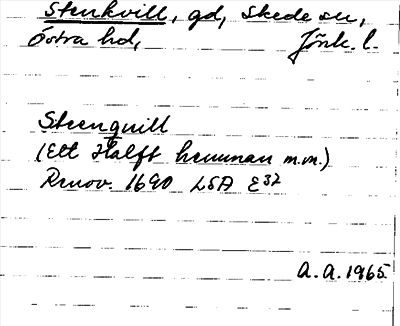 Stenkvill, gd, Skede sn,
Östra hd, Jönk. l.
Steenquill
(Ett Halft hemman m.m.)
Renov. 1690 LSA E32
A.A. 1965